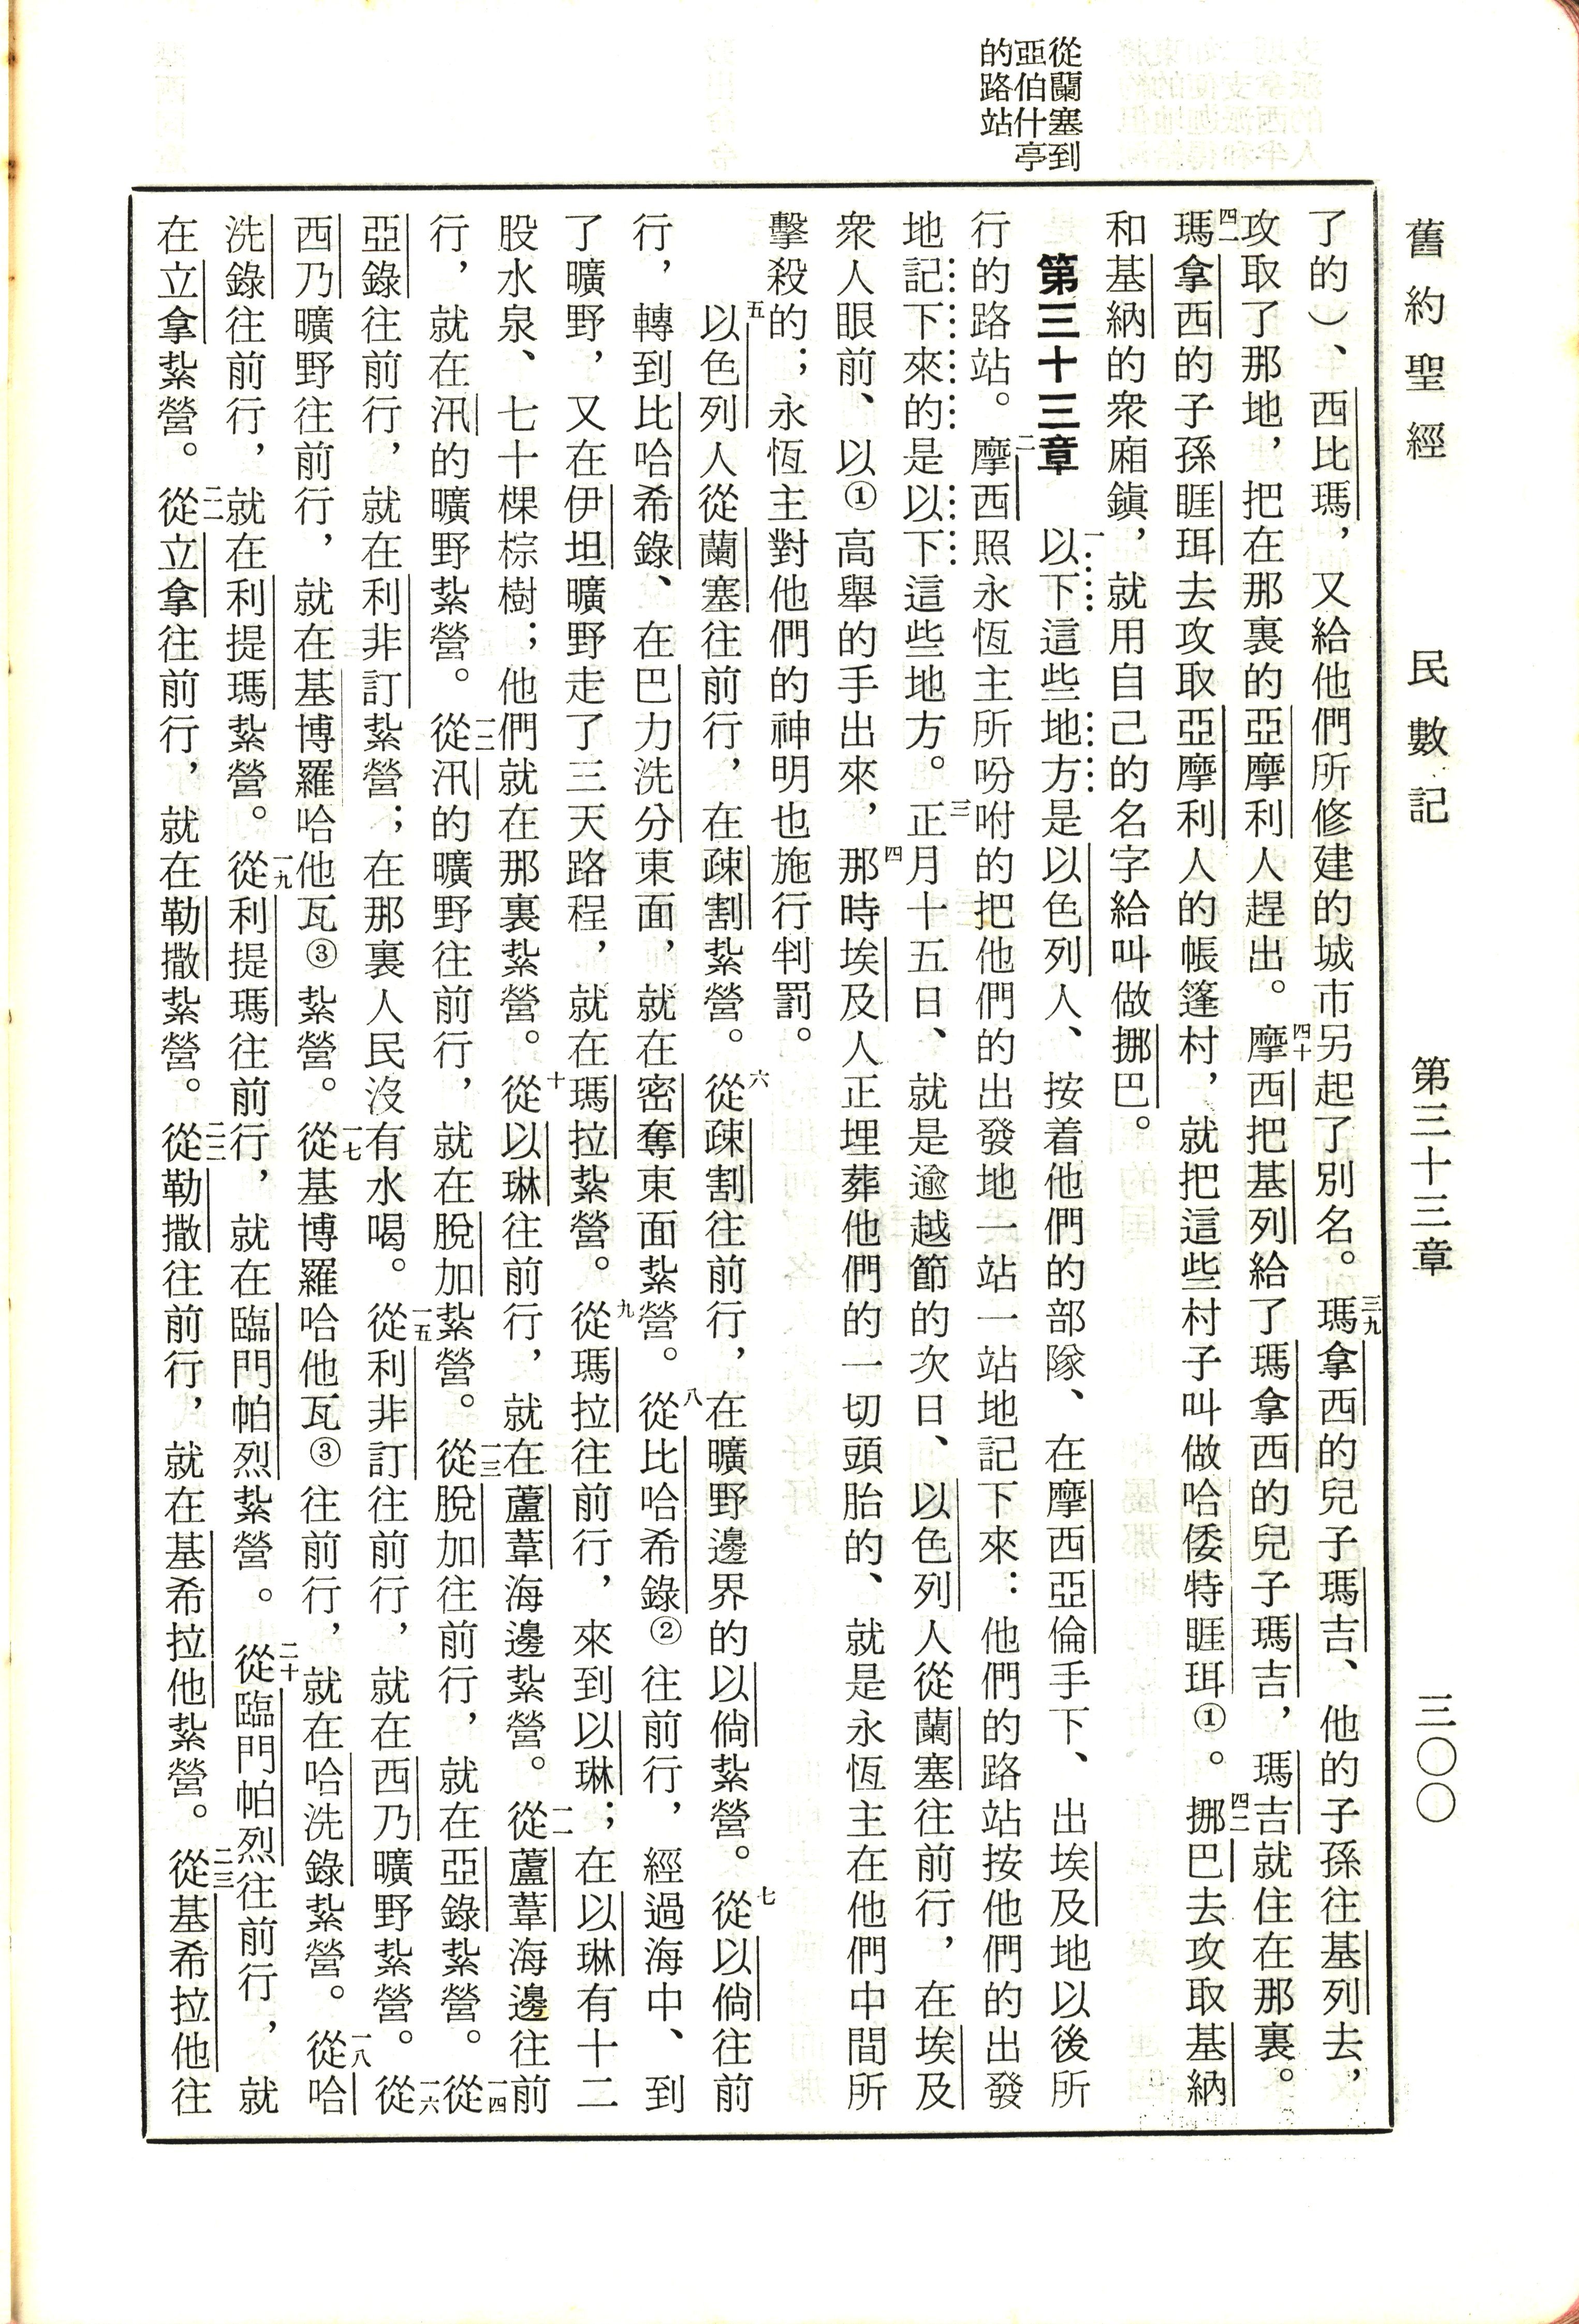 舊約聖經 民數記 第三十三章 三〇〇
從蘭塞到
亞伯什亭
的路站
了的）、西比瑪，又給他們所修建的城市另起了別名。三九瑪拿西的兒子瑪吉、他的子孫往基列去，
攻取了那地，把在那裏的亞摩利人趕出。四十摩西把基列給了瑪拿西的兒子瑪吉，瑪吉就住在那裏。
四一瑪拿西的子孫睚珥去攻取亞摩利人的帳篷村，就把這些村子叫做哈倭特睚珥①。四二挪巴去攻取基納
和基納的衆廂鎮，就用自己的名字給叫做挪巴。
第三十三章 一以下這些地方是以色列人、按着他們的部隊、在摩西亞倫手下、出埃及地以後所
行的路站。二摩西照永恆主所吩咐的把他們的出發地一站一站地記下來：他們的路站按他們的出發
地記下來的是以下這些地方。三正月十五日、就是逾越節的次日、以色列人從蘭塞往前行，在埃及
衆人眼前、以①高舉的手出來，四那時埃及人正埋葬他們的一切頭胎的、就是永恆主在他們中間所
擊殺的；永恆主對他們的神明也施行判罰。
五以色列人從蘭塞往前行，在疎割紮營。六從疎割往前行，在曠野邊界的以倘紮營。七從以倘往前
行，轉到比哈希錄、在巴力洗分東面，就在密奪東面紮營。八從比哈希錄②往前行，經過海中、到
了曠野，又在伊坦曠野走了三天路程，就在瑪拉紮營。九從瑪拉往前行，來到以琳；在以琳有十二
股水泉、七十棵棕樹；他們就在那裏紮營。十從以琳往前行，就在蘆葦海邊紮營。一一從蘆葦海邊往前
行，就在汛的曠野紮營。一二從汛的曠野往前行，就在脫加紮營。一三從脫加往前行，就在亞錄紮營。一四從
亞錄往前行，就在利非訂紮營；在那裏人民沒有水喝。一五從利非訂往前行，就在西乃曠野紮營。一六從
西乃曠野往前行，就在基博羅哈他瓦③紮營。一七從基博羅哈他瓦③往前行，就在哈洗錄紮營。一八從哈
洗錄往前行，就在利提瑪紮營。一九從利提瑪往前行，就在臨門帕烈紮營。二十從臨門帕烈往前行，就
在立拿紮營。二一從立拿往前行，就在勒撒紮營。二二從勒撒往前行，就在基希拉他紮營。二三從基希拉他往